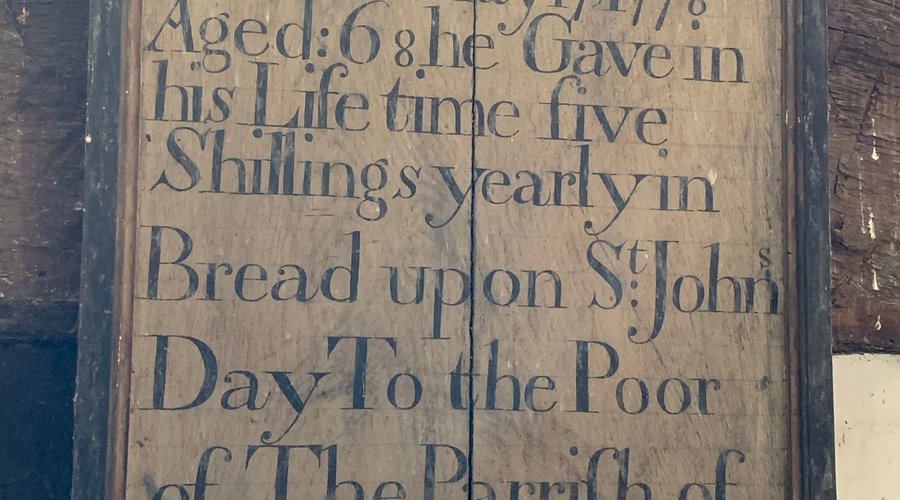 Aged: 68 he Gave in
his Life time five
Shillings yearly in
Bread upon St: Johns
Day To the Poor
of The Parrish of